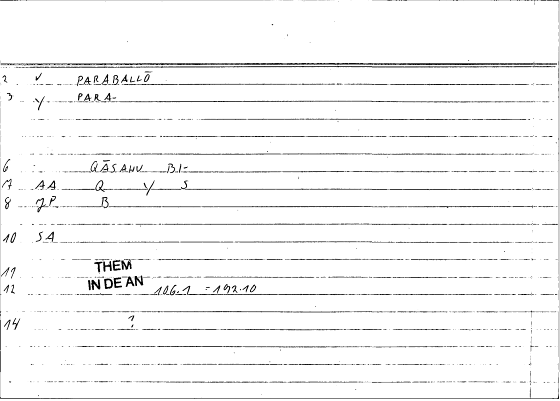 2 v PARABALLŌ
3 y PARA-
6 QĀSAHU BI-
7 AA Q Y S
8 JP B
10 SA
11 THEM
12 IN DE AN 106.1 = 192.10
14 ?